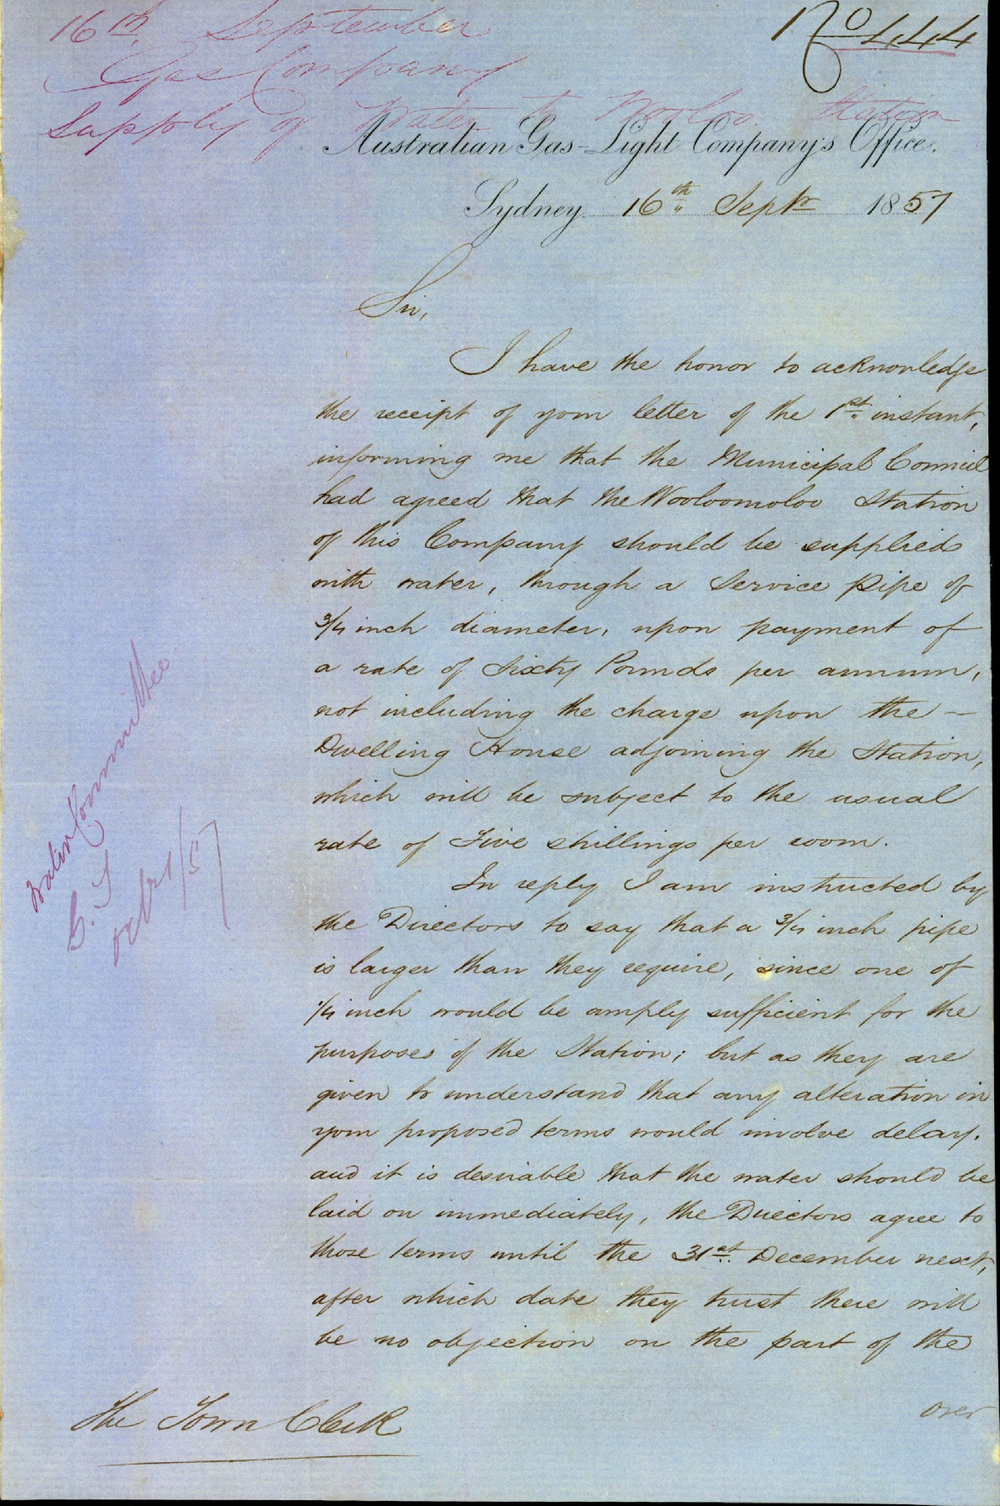 16th September
Gas Company
Supply of Water to Wooloo Station
No 444
Australian Gas-Light Company's Office.
Sydney 16th Septr 1857
Sir,
I have the honor to acknowledge
the receipt of your letter of the 1st instant,
informing me that the Municipal Council
had agreed that the Wooloomoloo Station
of this Company should be supplied
with water, through a Service pipe of
3/4 inch diameter, upon payment of
a rate of Sixty Pounds per annum,
not including the charge upon the —
Dwelling House adjoining the Station,
which will be subject to the usual
rate of Five shillings per room.
In reply I am instructed by
the Directors to say that a 3/4 inch pipe
is larger than they require, since one of
1/4 inch would be amply sufficient for the
purposes of the Station; but as they are
given to understand that any alteration in
your proposed terms would involve delay,
and it is desirable that the water should be
laid on immediately, the Directors agree to
those terms until the 31st December next,
after which date they trust there will
be no objection on the part of the
over
The Town Clerk
Water Committee
Octr 1/57